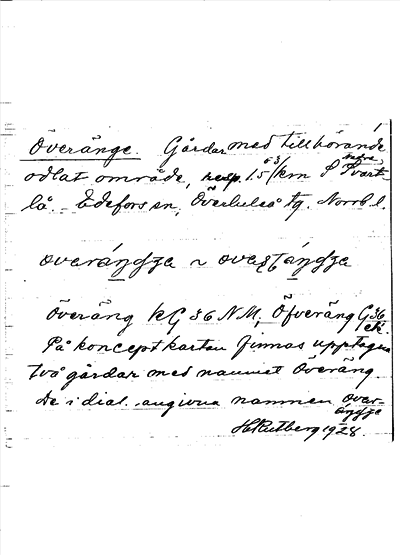 Överänge. Gårdar med tillhörande
odlat område, resp. 1.5 km S Svart-
lå. Edefors sn, Överluleå tg. Norrb. l.
Överäng KG 36 NM, Öfveräng G 36
etc.
På konceptkartan finnas upptagna
två gårdar med namnet Överäng.
De i dial. angivna namnen
H. Rutberg 1928.